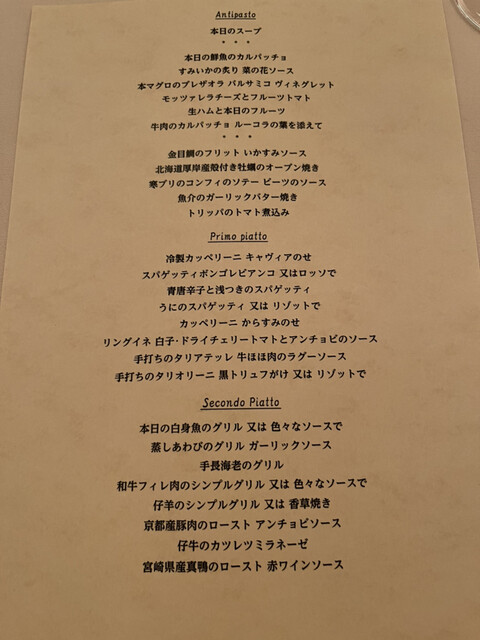 Antipasto
本日のスープ
* * *
本日の鮮魚のカルパッチョ
すみいかの炙り 菜の花ソース
本マグロのブレザオラ バルサミコ ヴィネグレット
モッツァレラチーズとフルーツトマト
生ハムと本日のフルーツ
牛肉のカルパッチョ ルーコラの葉を添えて
* * *
金目鯛のフリット いかすみソース
北海道厚岸産殻付き牡蠣のオーブン焼き
寒ブリのコンフィのソテー ビーツのソース
魚介のガーリックバター焼き
トリッパのトマト煮込み
Primo piatto
冷製カッペリーニ キャヴィアのせ
スパゲッティボンゴレビアンコ 又はロッソで
青唐辛子と浅つきのスパゲッティ
うにのスパゲッティ 又は リゾットで
カッペリーニ からすみのせ
リングイネ 白子・ドライチェリートマトとアンチョビのソース
手打ちのタリアテッレ 牛ほほ肉のラグーソース
手打ちのタリオリーニ 黒トリュフがけ 又は リゾットで
Secondo Piatto
本日の白身魚のグリル 又は 色々なソースで
蒸しあわびのグリル ガーリックソース
手長海老のグリル
和牛フィレ肉のシンプルグリル 又は 色々なソースで
仔羊のシンプルグリル 又は 香草焼き
京都産豚肉のロースト アンチョビソース
仔牛のカツレツミラネーゼ
宮崎県産真鴨のロースト 赤ワインソース